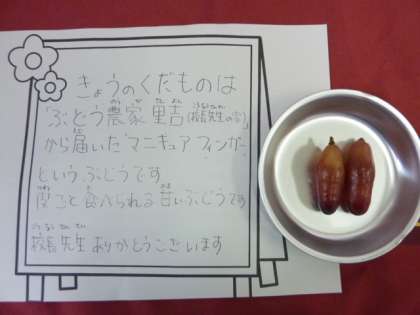 きょうのくだものは
「ぶどう農家 (校長先生の家)」
から届いた マニキュア フィンガー
という ぶどうです
皮ごと食べられる 甘いぶどうです
校長先生 ありがとうございます